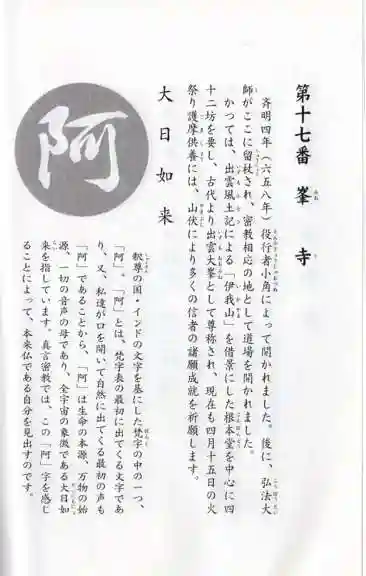 第十七番 峯寺
斉明四年（六五八年）役行者小角によって開かれました。後に、弘法大
師がここに留杖され、密教相応の地として道場を開かれました。
かつては、出雲風土記による「伊我山」を借景にした根本堂を中心に四
十二坊を要し、古代より出雲大峯として尊称され、現在も四月十五日の火
祭り護摩供養には、山伏により多くの信者の諸願成就を祈願します。
大日如来
阿
釈尊の国・インドの文字を基にした梵字の中の一つ、
「阿」。「阿」とは、梵字表の最初に出てくる文字であ
り、又、私達が口を開いて自然に出てくる最初の声も
「阿」であることから、「阿」は生命の本源、万物の始
源、一切の音声の母であり、全宇宙の象徴である大日如
来を指しています。真言密教では、この「阿」字を感じ
ることによって、本来仏である自分を見出すのです。